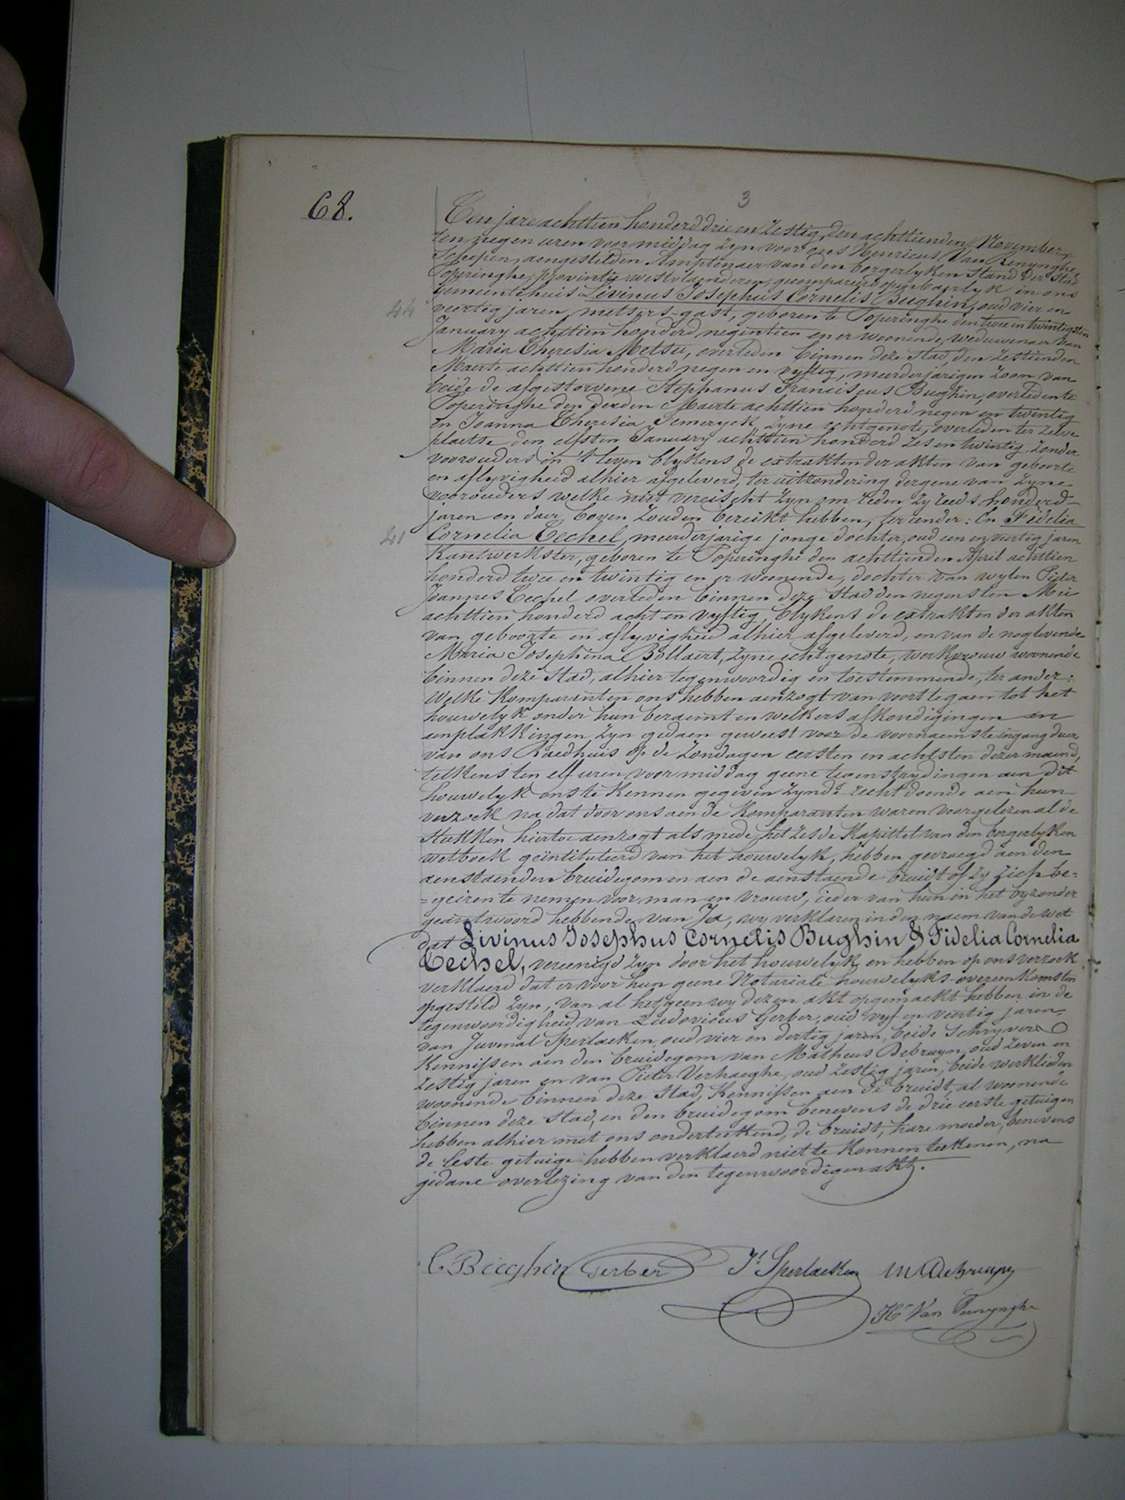 3
68.
Ten jare achttien honderd drie en zestig, den achttienden November,
ten negen uren voormiddag zyn voor ons Henricus Van Renynghe
Schepen, aengestelden Amptenaer van den borgerlyken stand der stad
Poperinghe, provintie westvlaenderen, gecompareerd openbaerlyk in ons
gemeentehuis Livinus Josephus Cornelis Bughin, oud vier en
44
veertig jaren, metsers-gast, geboren te Poperinghe den twee en twintigsten
January achttien honderd negentien en er woonende, weduwenaer van
Maria Theresia Metsu, overleden binnen deze stad, den zestienden
Maerte achttien honderd negen en vyftig, meerderjarigen zoon van
beide de afgestorvene Stephanus Franciscus Bughin, overleden te
Poperinghe den derden Maerte achttien honderd negen en twintig
en Joanna Theresia zyne echtgenote, overleden ter zelve
plaetse den elfsten January achttien honderd zes en twintig zonder
voorouders in 't leven blykens de extrakten der akten van geboorte
en aflyvigheid alhier afgeleverd, ter uitzondering dergene van zyne
voorouders welke niet vereischt zyn om reden zy reeds honderd
jaren en daer boven zouden bereikt hebben, ter eender: En Fidelia
41
Cornelia Cechel, meerderjarige jonge dochter, oud een en veertig jaren
Kantwerkster, geboren te Poperinghe den achttienden April achttien
honderd twee en twintig en er woonende, dochter van wylen Pieter
Joannes Cechel overleden binnen deze stad den negensten Mei
achttien honderd acht en vyftig, blykens de extrakten der akten
van geboorte en aflyvigheid alhier afgeleverd, en van de nog levende
Maria Josephina Bollaert, zyne echtgenote, werkvrouw woonende
binnen deze stad, alhier tegenwoordig en toestemmende, ter ander:
Welke Komparanten ons hebben aenzogt van voort te gaen tot het
houwelyk onder hun beraemt en welkers afkondigingen en
aenplakkingen zyn gedaen geweest voor de voornaemste ingangdeur
van ons Raedhuis op de zondagen eersten en achtsten dezer maend,
telkens ten elf uren voormiddag geene tegenstrydingen aen dit
houwelyk ons te kennen gegeven zynde recht doende aen hun
verzoek na dat door ons aen de Komparanten waren voorgelezen al de
stukken hiertoe aenzogt als mede het zesde Kapittel van den borgerlyken
wetboek geïntituleerd van het houwelyk, hebben gevraegd aen den
aenstaenden bruidegom en aen de aenstaende bruidt of zy zich be-
=geiren te nemen voor man en vrouw, ieder van hun in het byzonder
geantwoord hebbende van Ja, wy verklaren in den naem van de wet
dat Livinus Josephus Cornelis Bughin & Fidelia Cornelia
Cechel, vereenigd zyn door het houwelyk en hebben op ons verzoek
verklaerd dat er voor hun geene Notariale houwelyks overeenkomsten
opgesteld zyn, van al hetgeen wy dezen akt opgemaekt hebben in de
tegenwoordigheid van Ludovicus Gerber, oud vyf en veertig jaren,
van Juvenal Sperlaeken, oud vier en dertig jaren, beide schryvers
Kennissen aen den bruidegom van Matheus Debruyn, oud zeven en
zestig jaren en van Pieter Verhaeghe, oud zestig jaren, beide werklieden
woonende binnen deze stad, Kennissen aen de bruidt, al woonende
binnen deze stad, en den bruidegom benevens de drie eerste getuigen
hebben alhier met ons onderteekend, de bruidt, hare moeder, benevens
de leste getuige hebben verklaerd niet te konnen teekenen, na
gedane overlezing van den tegenwoordigen akt.
C Bueghin Gerber Jl Sperlaeken M Debruyn
Hri Van Renynghe